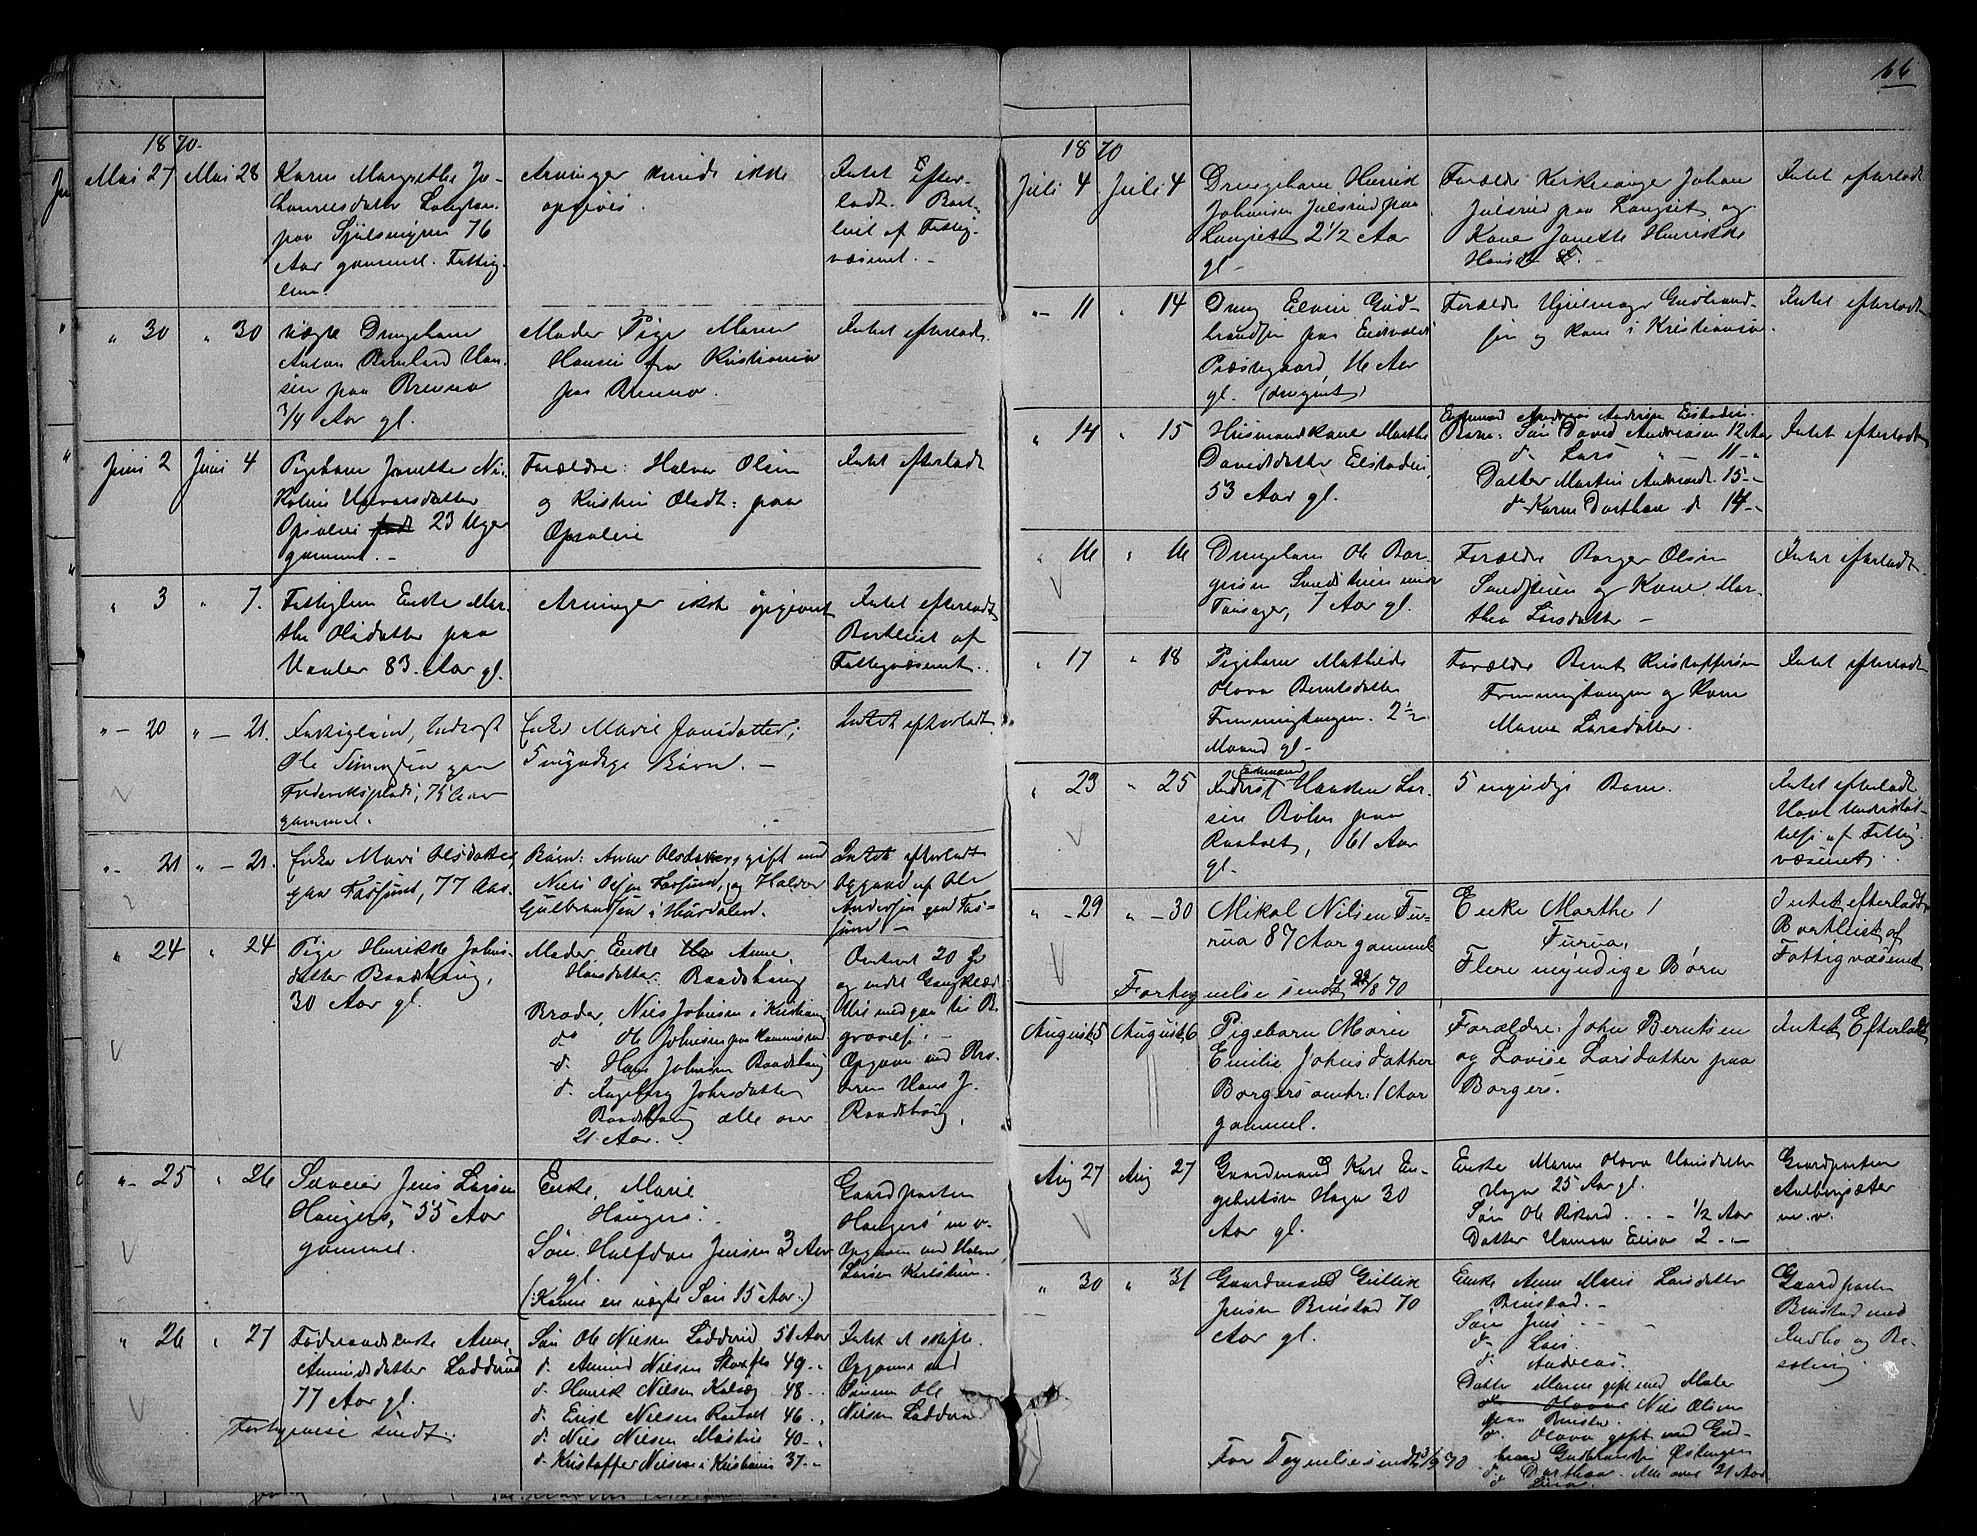 66
1870.
Mai 27 Mai 28
Karen Margrethe Jo-
hannesdatter
paa 76
Aar gammel. Fattig-
lem.
Arvinger kunde ikke
opgives.
Intet Efter-
ladt. Bort-
leiet af Fattig-
væsenet. -
" 30 " 30
uægte Drengebarn
Anton Bernhard Han-
sen paa Brenna
3/4 Aar gl.
Moder Pige Maren
Hansen fra Kristiania
paa Brenna.
Intet efterladt.
Juni 2 Juni 4
Pigebarn Janette Ni-
koline Halvorsdatter
Opsaleie 23 Uger
gammel. -
Forældre: Halvor Olsen
og Kristine Olsdt: paa
Opsaleie
Intet efterladt
" 3 " 7.
Fattiglem Enke Mar-
the Olsdatter paa
83 Aar gl.
Arvinger ikke opgivent
Intet efterladt
Bortleiet af
Fattigvæsenet.
" - 20 " - 21.
Fattiglem, Inderst
Ole Simensen paa
Frederiksplads, 75 Aar
gammel.
Enke Marie Jonsdatter;
5 myndige Børn. -
Intet efterladt
" - 21 " - 21.
Enke Mari Olsdatter
paa Fossund, 77 Aar.
Børn: Anne Olsdatter gift med
Niels Olsen Fossund, og Halvor
Gulbrandsen i Hurdalen.
Intet efterladt
Opgave af Ole
Andersen paa Fos-
sund -
" 24 " 24
Pige Henrikke Johns-
datter Baadshaug,
30 Aar gl.
Moder, Enke Anne
Hansdatter Baadshaug
Broder, Niels Johnsen i Kristiania
do Ole Johnsen paa
d. Hans Johnsen Baadshaug
d. Ingeborg Johnsdatter
Baadshaug alle over
21 Aar.
Omtrent 20
og endel Gangklæd
med paa til Be-
gravelse. -
Opgaven ved Bro-
deren Hans J.
Baadshaug.
" - 25 " 26
Søveier Jens Larsen
Haugers, 55 Aar
gammel.
Enke, Marie
Haugers.
Søn. Halfdan Jensen 3 Aar
gl.
(: Konens en uægte Søn 15 Aar :)
Gaardparten
Haugers m. v.
Opgaven ved Halvor
Larsen
" 26 " 27
Føderaadsenke Anne
Amundsdatter Loddvud
77 Aar gl.
Fortegnelse sendt.
Søn Ole Nielsen Loddvud 51 Aar
d. Amund Nielsen 49 -
d. Henrik Nielsen 48 -
d. Erik Nielsen Raaholt 46 -
d. Niels Nielsen 40 -
d. Kristoffer Nielsen i Kristiania 37 -
Intet at skifte.
Opgaven ved
Sønnen Ole
Nielsen Loddvud
1870
Juli 4 Juli 4
Drengebarn Henrik
Johansen Julsrud paa
Langset 2 1/2 Aar
gl -
Forældre Kirkesanger Johan
Julsrud paa Langset og
Kone Janette Henrikke
Intet efterladt
" - 11 " 14
Dreng Edvin Gud-
brandsen paa Eidsvolds
Præstegaard 16 Aar
gl. (druknet)
Forældre Hjulmager Gudbrand-
sen og Kone i Kristiania.
Intet efterladt
" 14 " 15
Husmandskone Marthe
Davidsdatter Eilstadeie
53 Aar gl.
Enkemand Andreas Andersen Eilstadeie.
Børn: Søn David Andreasen 12 Aar
d. Lars " - 11 - "
Datter Martin Andreasdt. 15 - -
d. Karen Dorthea d 14 -
Intet efterladt
" 16 " 16
Drengebarn Ole Bor-
gersen Sandsteien under
7 Aar gl.
Forældre Borger Olsen
Sandsteien og Kone Mar-
thea Larsdatter -
Intet efterladt
" 17 " 18
Pigebarn Mathilde
Olava Berntsdatter
2 1/2
Maaned gl -
Forældre Bernt Kristoffersen
og Kone
Maren Larsdatter.
Intet efterladt
" 23 " 25
Enkemand
Inderst Lar-
sen paa
Raaholt, 61 Aar
gl.
5 myndige Børn.
Intet efterladt
Havt Understøt-
telse af Fattig
væsenet.
" - 29 " - 30
Mikal Nilsen Fu-
rua 87 Aar gammel
Enke Marthe
Furua,
Flere myndige Børn
Intet efterladt
Bortleiet af
Fattigvæsenet
Fortegnelse sendt 22/8 70
August 5 August 6
Pigebarn Maren
Emilie Johnsdatter
Borgers omtr: 1 Aar
gammel.
Forældre: John Berntsen
og Lovise Larsdatter paa
Borgers.
Intet Efterladt
Aug 27 Aug 27
Gaardmand Karl En-
gebretsen Hagen 30
Aar gl.
Enke Maren Olava Hansdatter
Hagen 25 Aar gl.
Søn Ole Rikard - - 1/2 Aar
Datter Hanna Elisa 2 - -
Gaardparten
m. v.
" 30 " 31
Gaardmand Gullik
Jensen Brustad 70
Aar gl.
Enke Anne Marie Larsdatter
Brustad. -
Søn Jens - -
d. Lars.
d. Andreas.
Datter Maren gift med Maler
Nils Olsen
paa Brustad.
d. Olava gift med Gud-
brand Gudbrandsen
d. Dorthea. Alle over 21 Aar
Gaardparten
Brustad med
Indbo og Be-
sætning.
Fortegnelse sendt 3/9 70